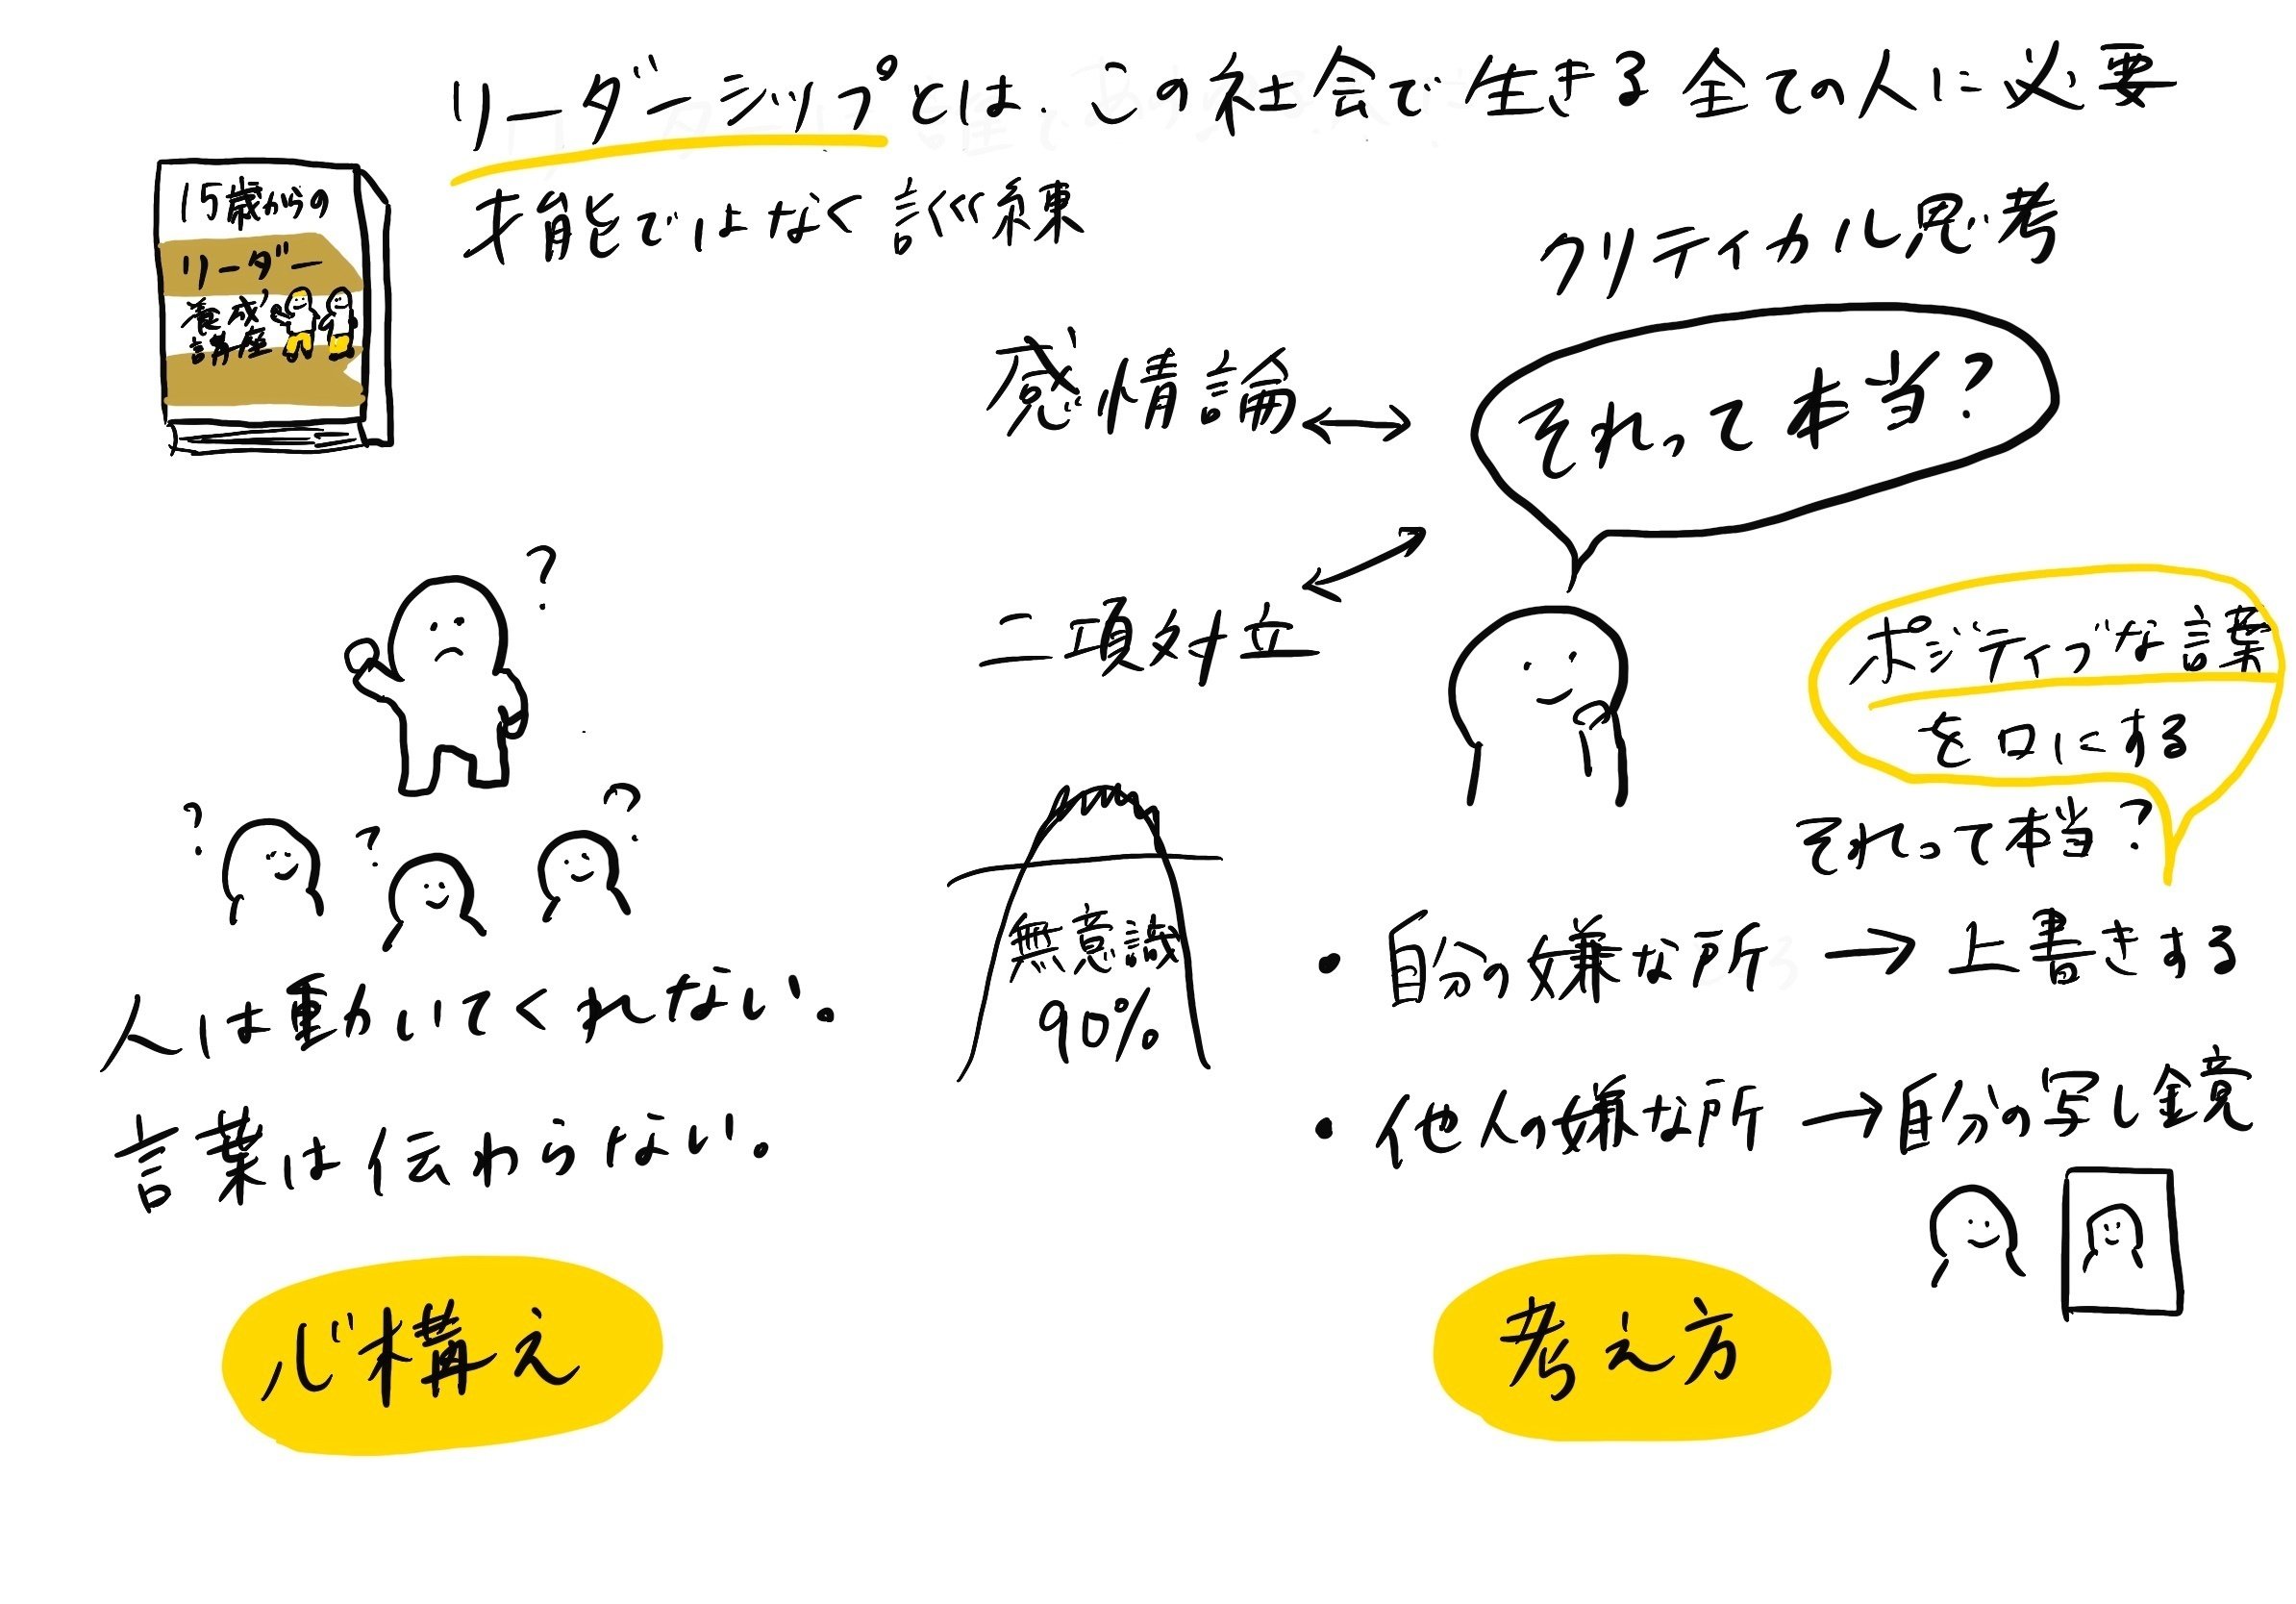 リーダーシップとは、この社会で生きる全ての人に必要
才能ではなく訓練
15歳からの
リーダー
養成
講座
クリティカル思考
感情論
それって本当?
二項対立
ポジティブな言葉
を口にする
それって本当?
?
?
?
?
人は動いてくれない。
言葉は伝わらない。
無意識
90%
・自分の嫌な所→上書きする
・他人の嫌な所→自分の写し鏡
心構え
考え方